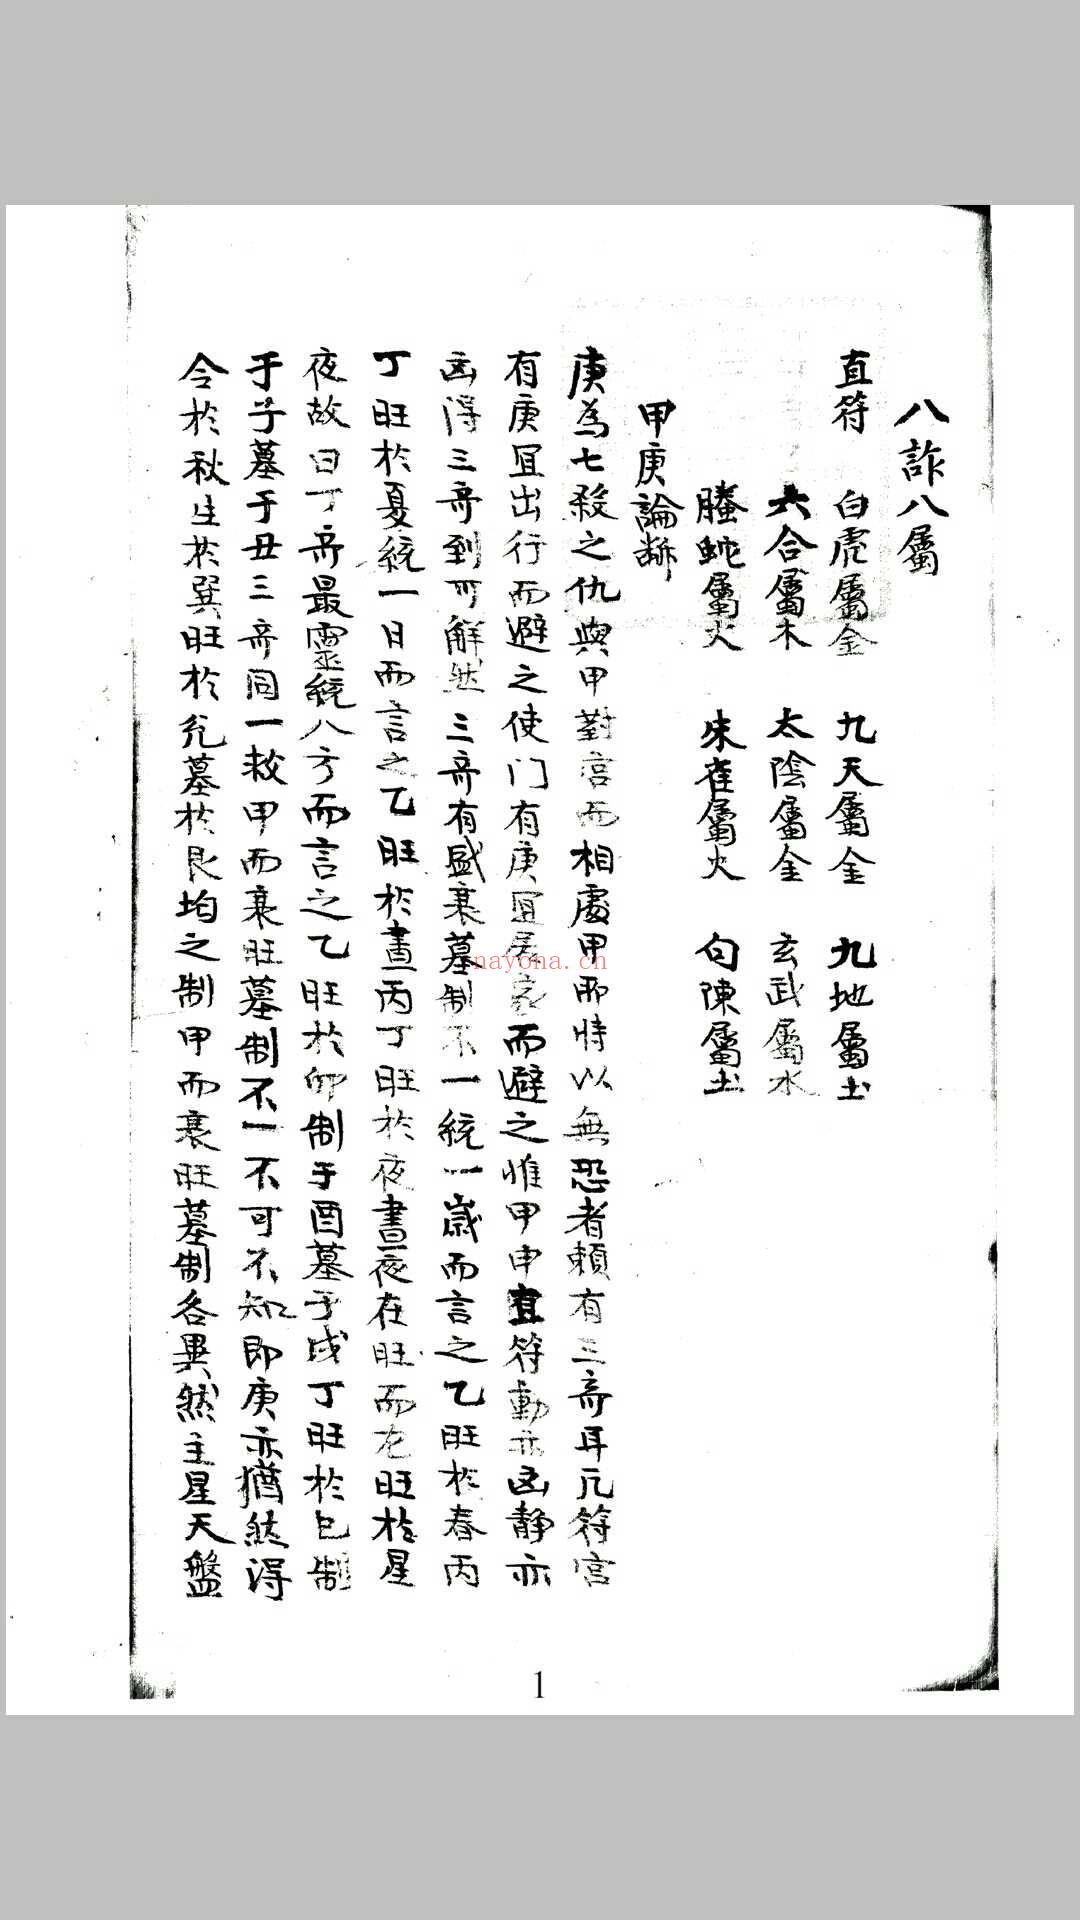 八詐八屬
直符　白虎屬金　九天屬金　九地屬土
六合屬木　太陰屬金　玄武屬水
螣蛇屬火　朱雀屬火　勾陳屬土
甲庚論斷
庚為七殺之仇與甲對宮而相處甲所恃以無恐者賴有三奇耳凡符宮
有庚宜出行而避之使门有庚宜居家而避之惟甲申直符動亦凶静亦
凶得三奇到可解然三奇有盛衰墓制不一統一歲而言之乙旺於春丙
丁旺於夏統一日而言之乙旺於晝丙丁旺於夜晝夜在旺而在旺於星
夜故曰丁奇最靈統八方而言之乙旺於卯制于酉墓于戌丁旺於巳制
于子墓于丑三奇同一救甲而衰旺墓制不一不可不知即庚亦猶然得
令於秋生於巽旺於兑墓於艮均之制甲而衰旺墓制各異然主星天盤
nayona.cn
1